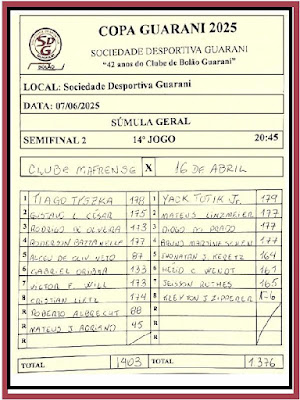 COPA GUARANI 2025
SOCIEDADE DESPORTIVA GUARANI
"42 anos do Clube de Bolão Guarani"
SDG
BOLÃO
LOCAL: Sociedade Desportiva Guarani
DATA: 07/06/2025
SÚMULA GERAL
SEMIFINAL 2 14º JOGO 20:45
CLUBE MAFRENSE X 16 DE ABRIL
1 TIAGO TYSZKA 178 1 YACK TUTIK Jr. 179
2 GUSTAVO L. CÉSAR 175 2 MATEUS LINZMEIER 177
3 RODRIGO DE OLVEIRA 173 3 DIOGO DI PRADO 177
4 177 4 BRUNO 177
5 87 5 JHONATAN J. 164
6 GABRIEL 133 6 HELIO C. WENDT 161
7 VICTOR F. WILL 173 7 JEISON RUTHES 165
8 CRISTIAN 174 8 KLEYTON J.
R ROBERTO ALBRECHT 88 R
R MATEUS J. ADRIANO 45 R
TOTAL 1403 TOTAL 1.376